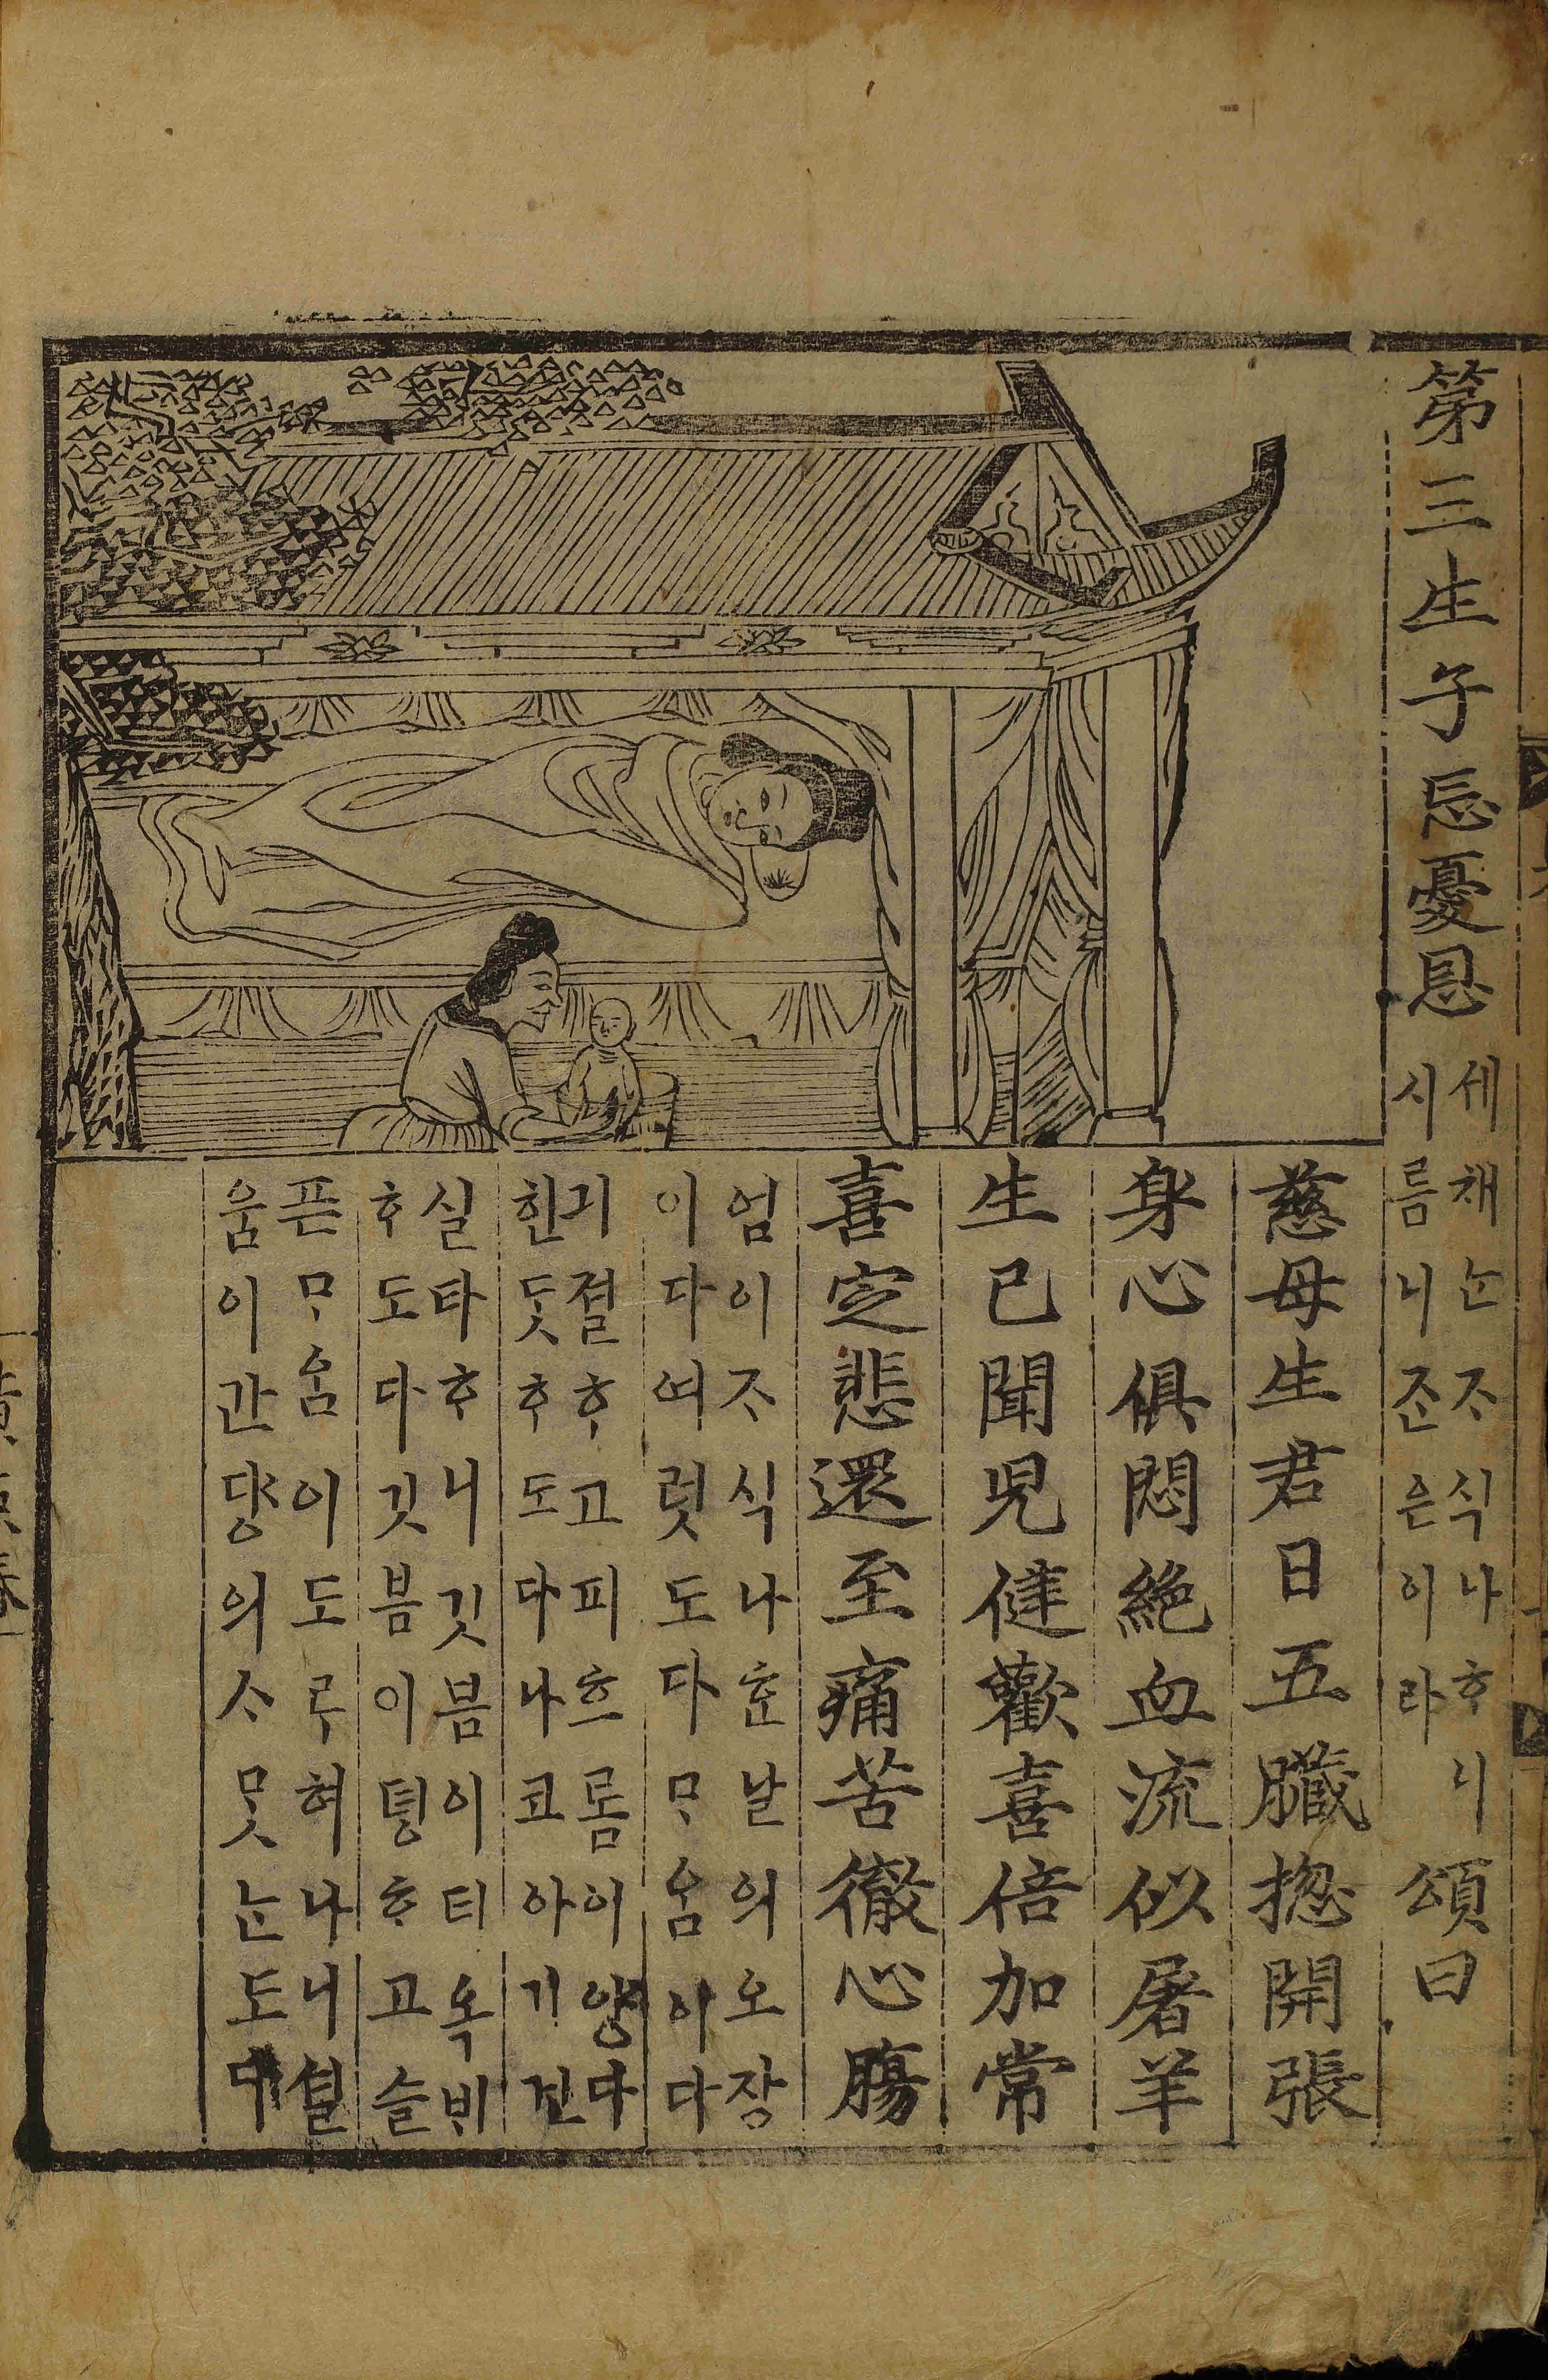 第三生子忘憂恩
세채ᄂᆞᆫᄌᆞ식나ᄒᆞ니
시름니ᄌᆞᆫ은이라
頌曰
慈母生君日五臟揔開張
身心俱悶絶血流似屠羊
生已聞児健歡喜倍加常
喜定悲還至痛苦徹心膓
엄이ᄌᆞ식나ᄒᆞᆫ날의오장
이다여럿도다ᄆᆞᄋᆞᆷ아다
긔졀ᄒᆞ고피흐롬이양다
힌ᄃᆞᆺᄒᆞ도다나코아기건
실타ᄒᆞ니깃븜이티옥ᄇᆡ
ᄒᆞ도다깃븜이뎡ᄒᆞ고슬
픈ᄆᆞᄋᆞᆷ이도ᄅᆞ혀나니셜
움이간댱의ᄉᆞᄆᆞᆺᄂᆞᆫ도다